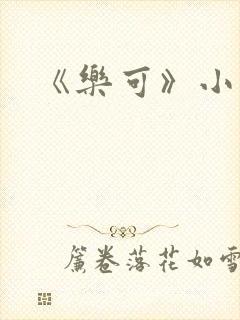 《樂可》小
簾卷落花如雪